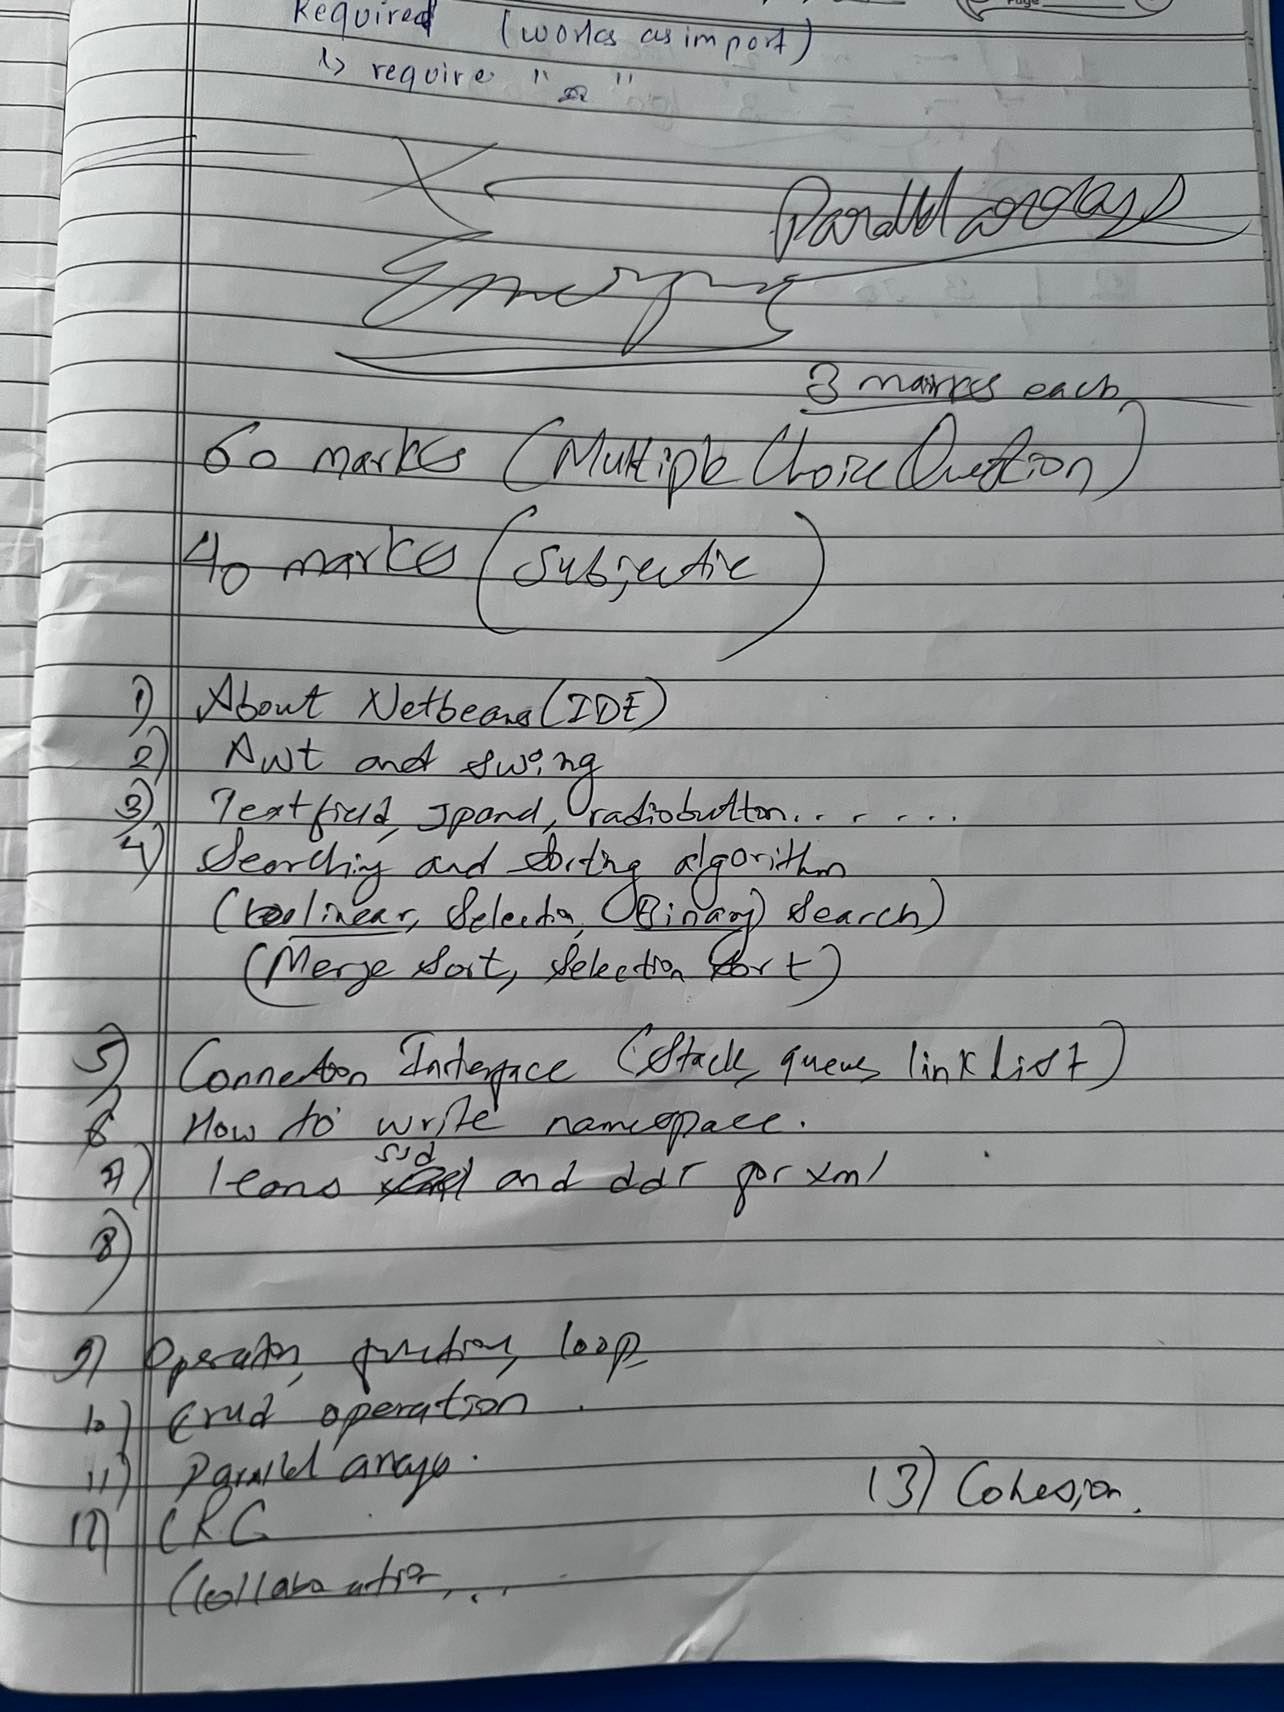 Required (works as import)
↳ require " "
Parallel arrays
Emerging
3 marks each
60 marks (Multiple Choice Question)
40 marks (Subjective)
1) About Netbeans (IDE)
2) Awt and swing
3) Textfield, Jpanel, radiobutton.......
4) Searching and sorting algorithm
(linear, Selection, (Binary) Search)
(Merge Sort, Selection Sort)
5) Connection Interface (Stack, queue, link List)
6 How to write namespace.
7) and ddt for xml
8)
9) Operator, function, loop
10) Crud operation.
11) Parallel arrays.
12) CRC
13) Cohesion.
(Collaboration,...